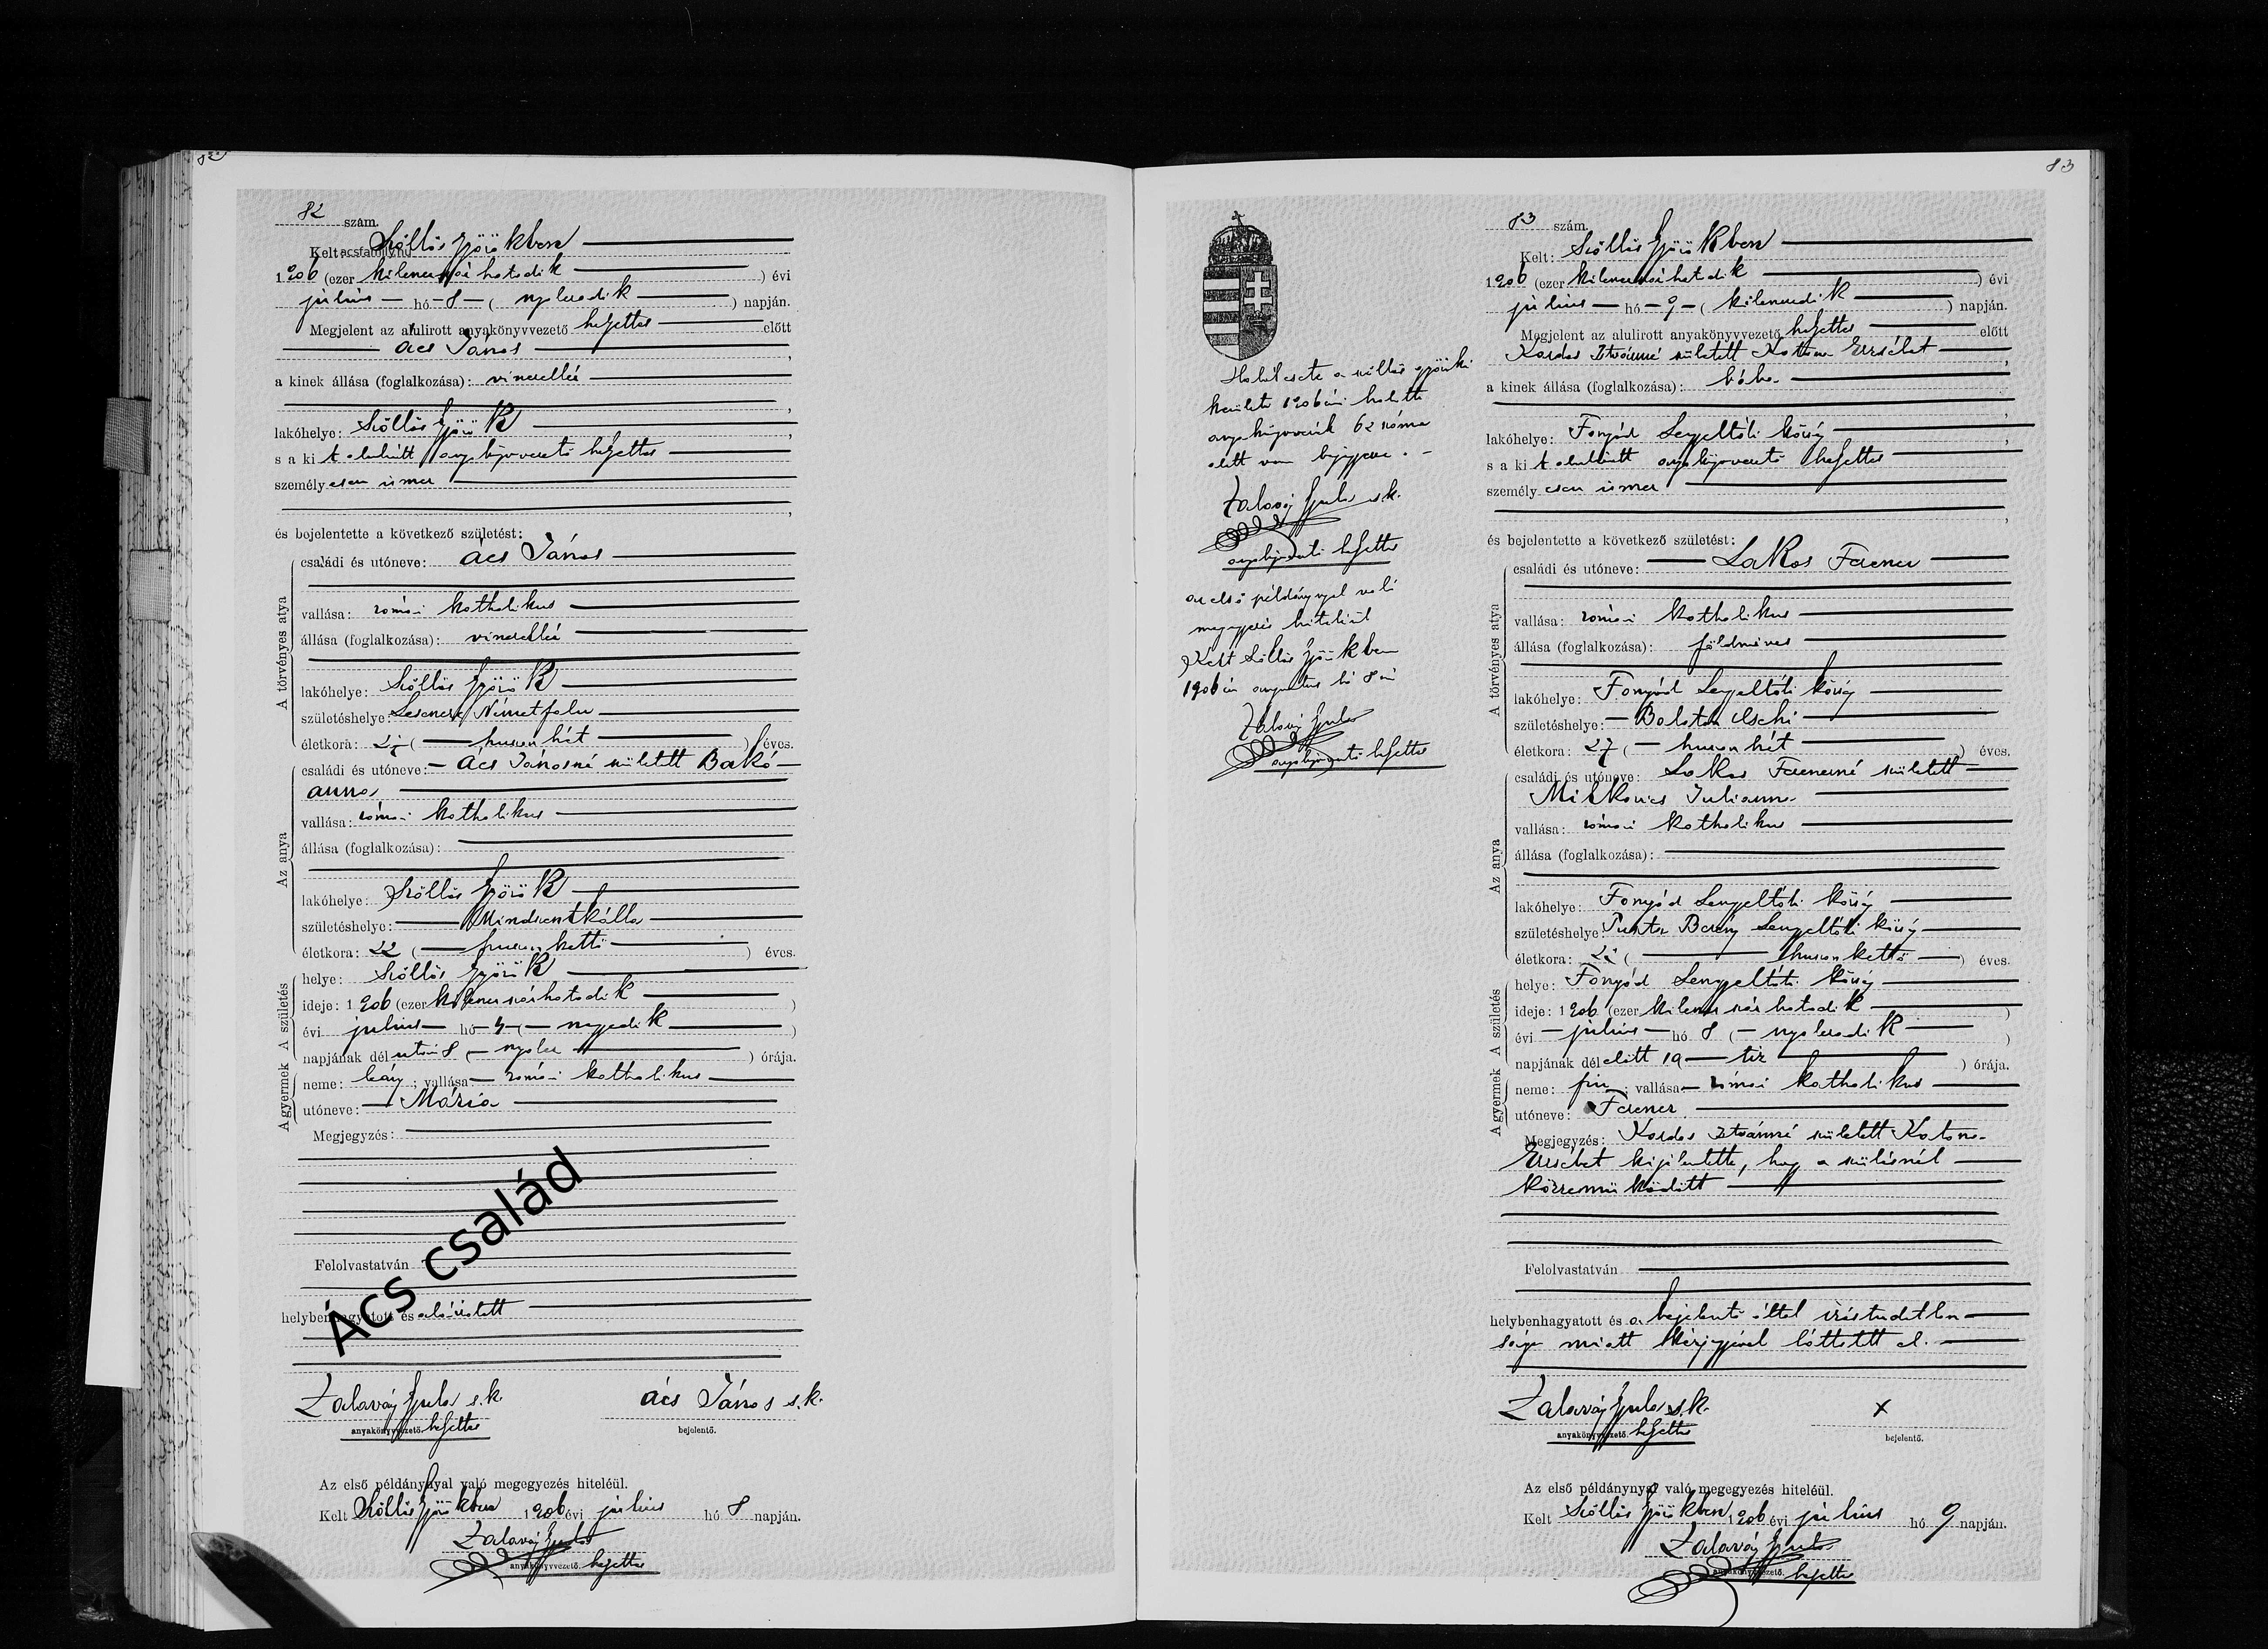 82
82 szám.
Kelt: Szőllős Györökben
1906 (ezer kilenczszázhatodik ) évi
július hó 8 ( nyolczadik ) napján.
Megjelent az alulirott anyakönyvvezető helyettes előtt
Ács János
a kinek állása (foglalkozása): vinczellér
lakóhelye: Szőllős Györök
s a kit alulírott anyakönyvvezető helyettes
személyesen ismer
és bejelentette a következő születést:
A törvényes atya
családi és utóneve: Ács János
vallása: római katholikus
állása (foglalkozása): vinczellér
lakóhelye: Szőllős Györök
születéshelye: Lesencze Németfalu
életkora: 27 ( huszonhét ) éves.
Az anya
családi és utóneve: Ács Jánosné született Bakó
Anna
vallása: római katholikus
állása (foglalkozása):
lakóhelye: Szőllős Györök
születéshelye: Mindszentkálla
életkora: 22 ( huszonkettő ) éves.
A gyermek A születés
helye: Szőllős Györök
ideje: 1906 (ezer kilenczszázhatodik )
évi július hó 4 ( negyedik )
napjának délután 8 ( nyolcz ) órája.
neme: leány; vallása római katholikus
utóneve: Mária
Megjegyzés:
Ács család
Felolvastatván
helybenhagyatott és aláíratott
Zalaváry Gyula s.k.
anyakönyvvezető. helyettes
Ács János s.k.
bejelentő.
Az első példánynyal való megegyezés hiteléül.
Kelt Szőllős Györökben 1906 évi július hó 8 napján.
Zalaváry Gyula
anyakönyvvezető. helyettes
Halálesete a szőllős györöki
kerület 1906 évi halotti
anyakönyvének 62 száma
alatt van bejegyezve.
Zalaváry Gyula s.k.
anyakönyvvezető helyettes
az első példánynyal való
megegyezés hiteléül
Kelt Szőllős Györökben
1906 évi augusztus hó 8 án
Zalaváry Gyula
anyakönyvvezető helyettes
83
83 szám.
Kelt: Szőllős Györökben
1906 (ezer kilenczszázhatodik ) évi
július hó 9 ( kilenczedik ) napján.
Megjelent az alulirott anyakönyvvezető helyettes előtt
Kardos Istvánné született Katona Erzsébet
a kinek állása (foglalkozása): bába
lakóhelye: Fonyód Lengyeltóti község
s a kit alulírott anyakönyvvezető helyettes
személyesen ismer
és bejelentette a következő születést:
A törvényes atya
családi és utóneve: Lakos Ferencz
vallása: római katholikus
állása (foglalkozása): földmíves
lakóhelye: Fonyód Lengyeltóti község
születéshelye: Balaton Csehi
életkora: 27 ( huszonhét ) éves.
Az anya
családi és utóneve: Lakos Ferenczné született
Milkovics Julianna
vallása: római katholikus
állása (foglalkozása):
lakóhelye: Fonyód Lengyeltóti község
születéshelye: Puszta Berény Lengyeltóti község
életkora: 22 ( huszonkettő ) éves.
A gyermek A születés
helye: Fonyód Lengyeltóti község
ideje: 1906 (ezer kilenczszázhatodik )
évi július hó 8 ( nyolczadik )
napjának délelőtt 10 tíz ) órája.
neme: fiu; vallása római katholikus
utóneve: Ferencz
Megjegyzés: Kardos Istvánné született Katona
Erzsébet kijelentette, hogy a szülésnél
közreműködött
Felolvastatván
helybenhagyatott és a bejelentő által írástudatlan
sága miatt kézjegyével láttatott el.
Zalaváry Gyula s.k.
anyakönyvvezető. helyettes
x
bejelentő.
Az első példánynyal való megegyezés hiteléül.
Kelt Szőllős Györökben 1906 évi július hó 9 napján.
Zalaváry Gyula
anyakönyvvezető. helyettes